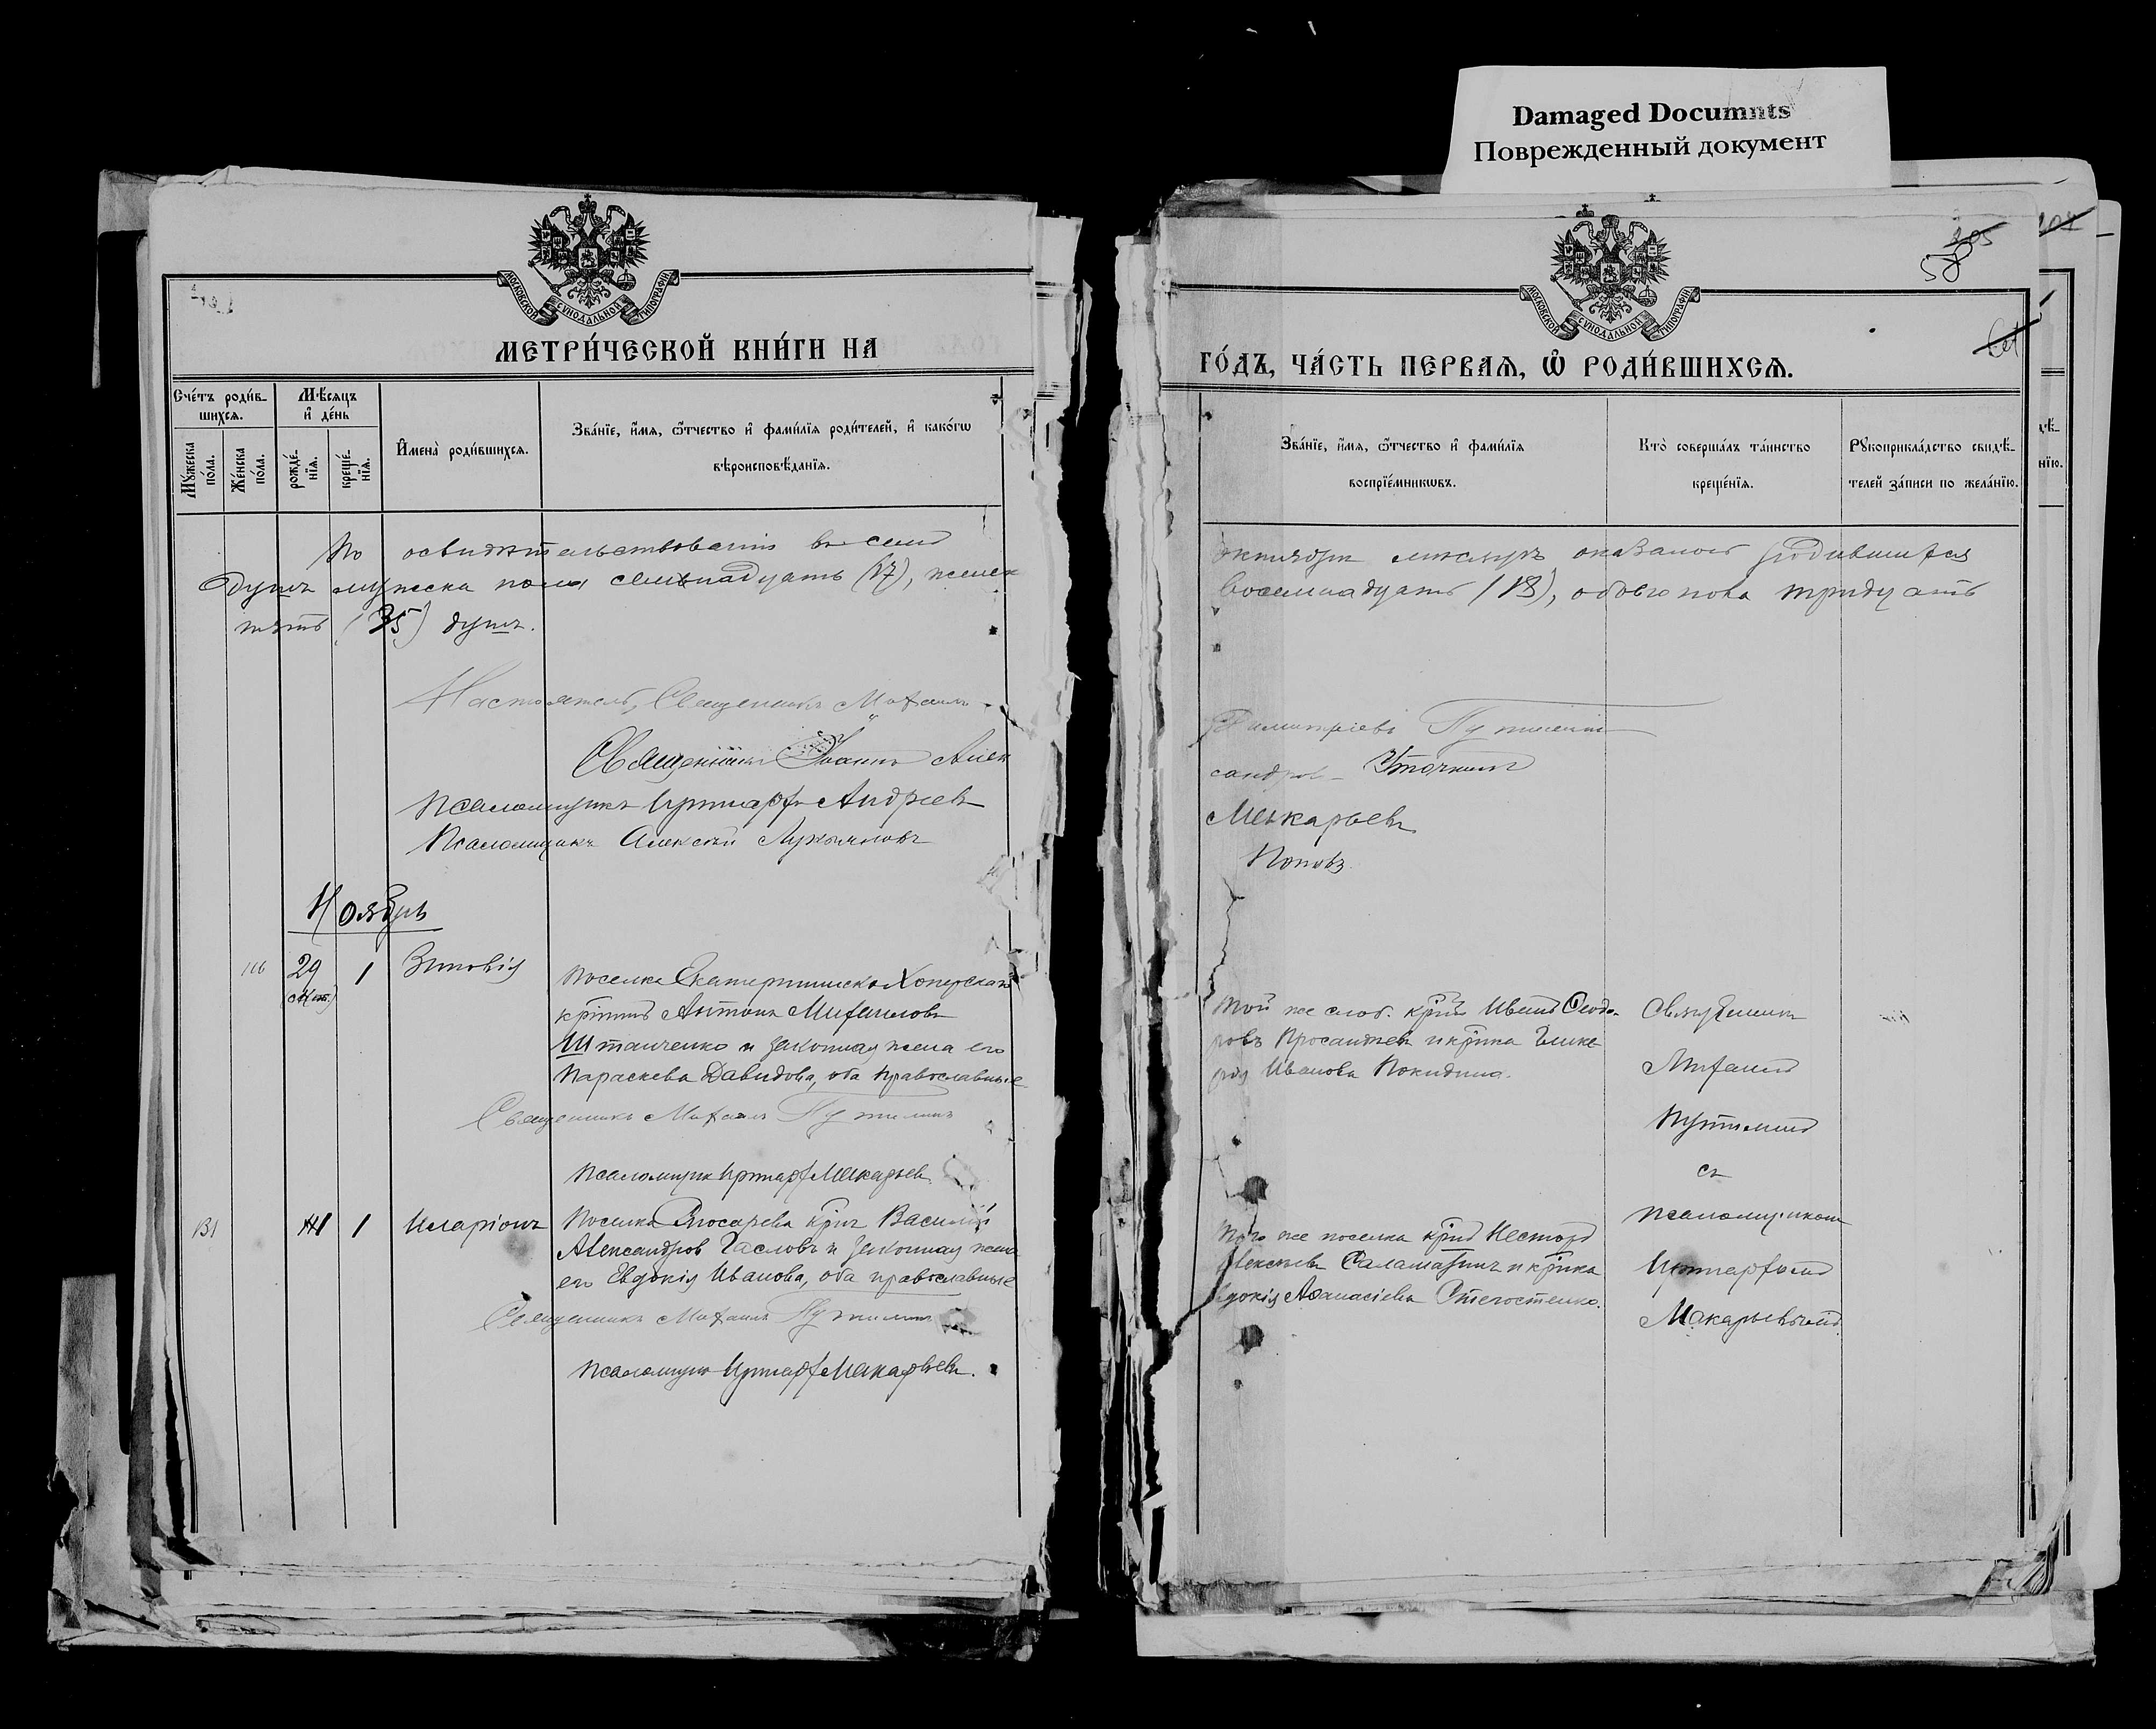 Damaged Documnts
Поврежденный документ
МОСКОВСКОЙ СѴНОДАЛЬНОЙ ТИПОГРАФІИ
МЕТРИ́ЧЕСКОЙ КНИ́ГИ НА
Сче́тъ роди́в-
шихсѧ.
Мѣ́сѧцъ
и҆ де́нь
Мꙋ́жеска
по́ла.
Же́нска
по́ла.
рожде́-
нїѧ.
креще́-
нїѧ.
И҆мена̀ роди́вшихсѧ.
Зва́нїе, и҆́мѧ, ѻ҆́тчество и҆ фами́лїѧ роди́телей, и҆ како́гѡ
вѣроисповѣ́данїѧ.
По освидѣтельствованіи въ семъ
душъ мужеска пола семнадцать (17), женск
пять (35) душъ.
Настоятель, Священникъ Михаилъ
Священникъ Іоаннъ Алек
Псаломщикъ Иринархъ Андреевъ
Псаломщикъ Алексѣй Лукьяновъ
Ноябрь
116 29 1 Зиновія
(Окт.)
Поселка Екатерининско Хоперскаго
крнинъ Антонъ Михаиловъ
Штанченко и законная жена его
Параскева Давидова, оба православные
Священникъ Михаилъ Путилинъ
Псаломщикъ Иринархъ Макарьевъ.
131 1 1 Иларіонъ
Поселка Слюсарева крнъ Василій
Александровъ Часловъ и законная жена
его Евдокія Иванова, оба православные
Священникъ Михаилъ Путилинъ
Псаломщикъ Иринархъ Макарьевъ.
205
58
МОСКОВСКОЙ СѴНОДАЛЬНОЙ ТИПОГРАФІИ
ГО́ДЪ, ЧА́СТЬ ПЕРВАѦ, Ѡ҆ РОДИ́ВШИХСѦ.
Зва́нїе, и҆́мѧ, ѻ҆́тчество и҆ фами́лїѧ
воспрїе́мникѡвъ.
Кто̀ соверша́лъ та́инство
креще́нїѧ.
Рꙋкоприкла́дство свидѣ́-
телей за́писи по жела́нїю.
октябрѣ мѣсяцѣ оказалось родившихся
восемнадцать (18), обоего пола тридцать
Димитріевъ Путилинъ
сандровъ Уточкинъ
Макарьевъ
Поповъ
той же слоб. крнинъ Иванъ Ѳеодо-
ровъ и крнка Глике
рія Иванова Покидина.
Священникъ
Михаилъ
Путилинъ
съ
псаломщикомъ
Иринархомъ
Макарьевымъ.
того же поселка крнинъ Несторъ
Алексѣевъ Саламахинъ и крнка
Евдокія Аѳанасіева